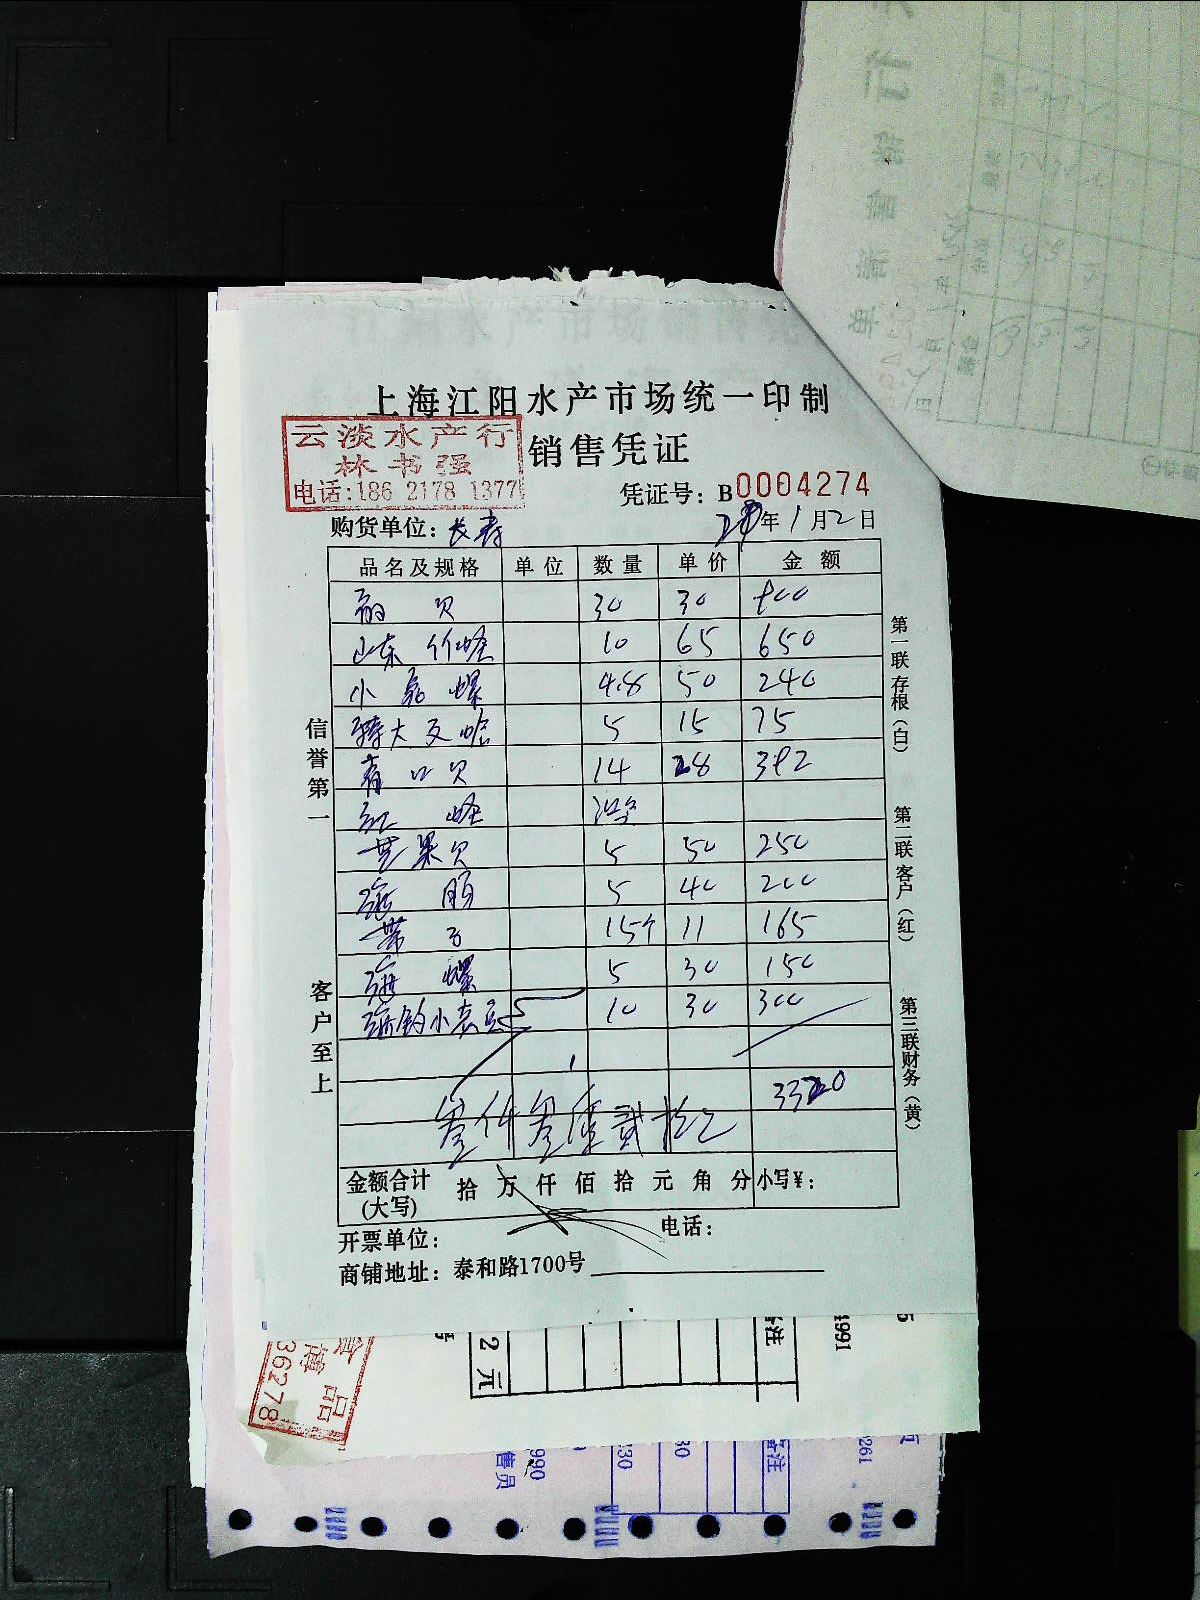 上海江阳水产市场统一印制
云淡水产行
林书强
电话:186 2178 1377
销售凭证
凭证号: B0004274
购货单位: 长寿
年1月2日
品名及规格 单位 数量 单价 金额
扇贝 30 30 900
山东竹蛏 10 65 650
小 螺 4.8 50 240
特大文蛤 5 15 75
青口贝 14 28 392
红蛏
芒果贝 5 50 250
5 40 200
带子 15个 11 165
海螺 5 30 150
10 30 300
3320
叁仟叁佰贰拾元
金额合计(大写) 拾万仟佰拾元角分 小写¥:
开票单位:
电话:
商铺地址: 泰和路1700号
信誉第一
客户至上
第一联 存根(白)
第二联 客户(红)
第三联 财务(黄)
2元
备注
4991
品
36278
售员
990
330
30
备注
0261